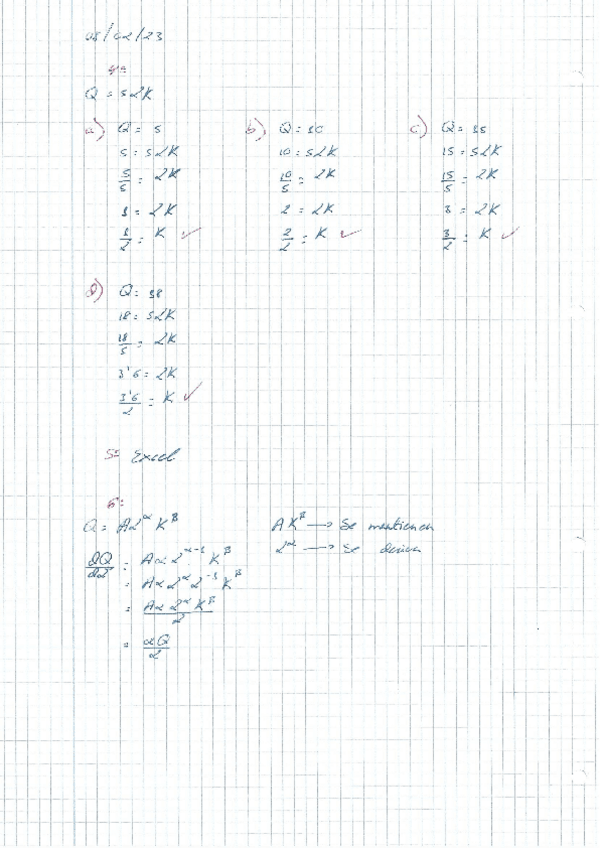 08/02/23
4º
Q = 5LK
a) Q = 5
5 = 5LK
5/5 = LK
1 = LK
1/L = K ✓
b) Q = 10
10 = 5LK
10/5 = LK
2 = LK
2/L = K ✓
c) Q = 15
15 = 5LK
15/5 = LK
3 = LK
3/L = K ✓
d) Q = 18
18 = 5LK
18/5 = LK
3'6 = LK
3'6/L = K ✓
5º Excel
6º
Q = AL^α K^β
AK^β → Se mantienen
L^α → Se deriva
dQ/dL = AαL^(α-1) K^β
= AαL^α L^-1 K^β
= AαL^α K^β / L
= αQ/L